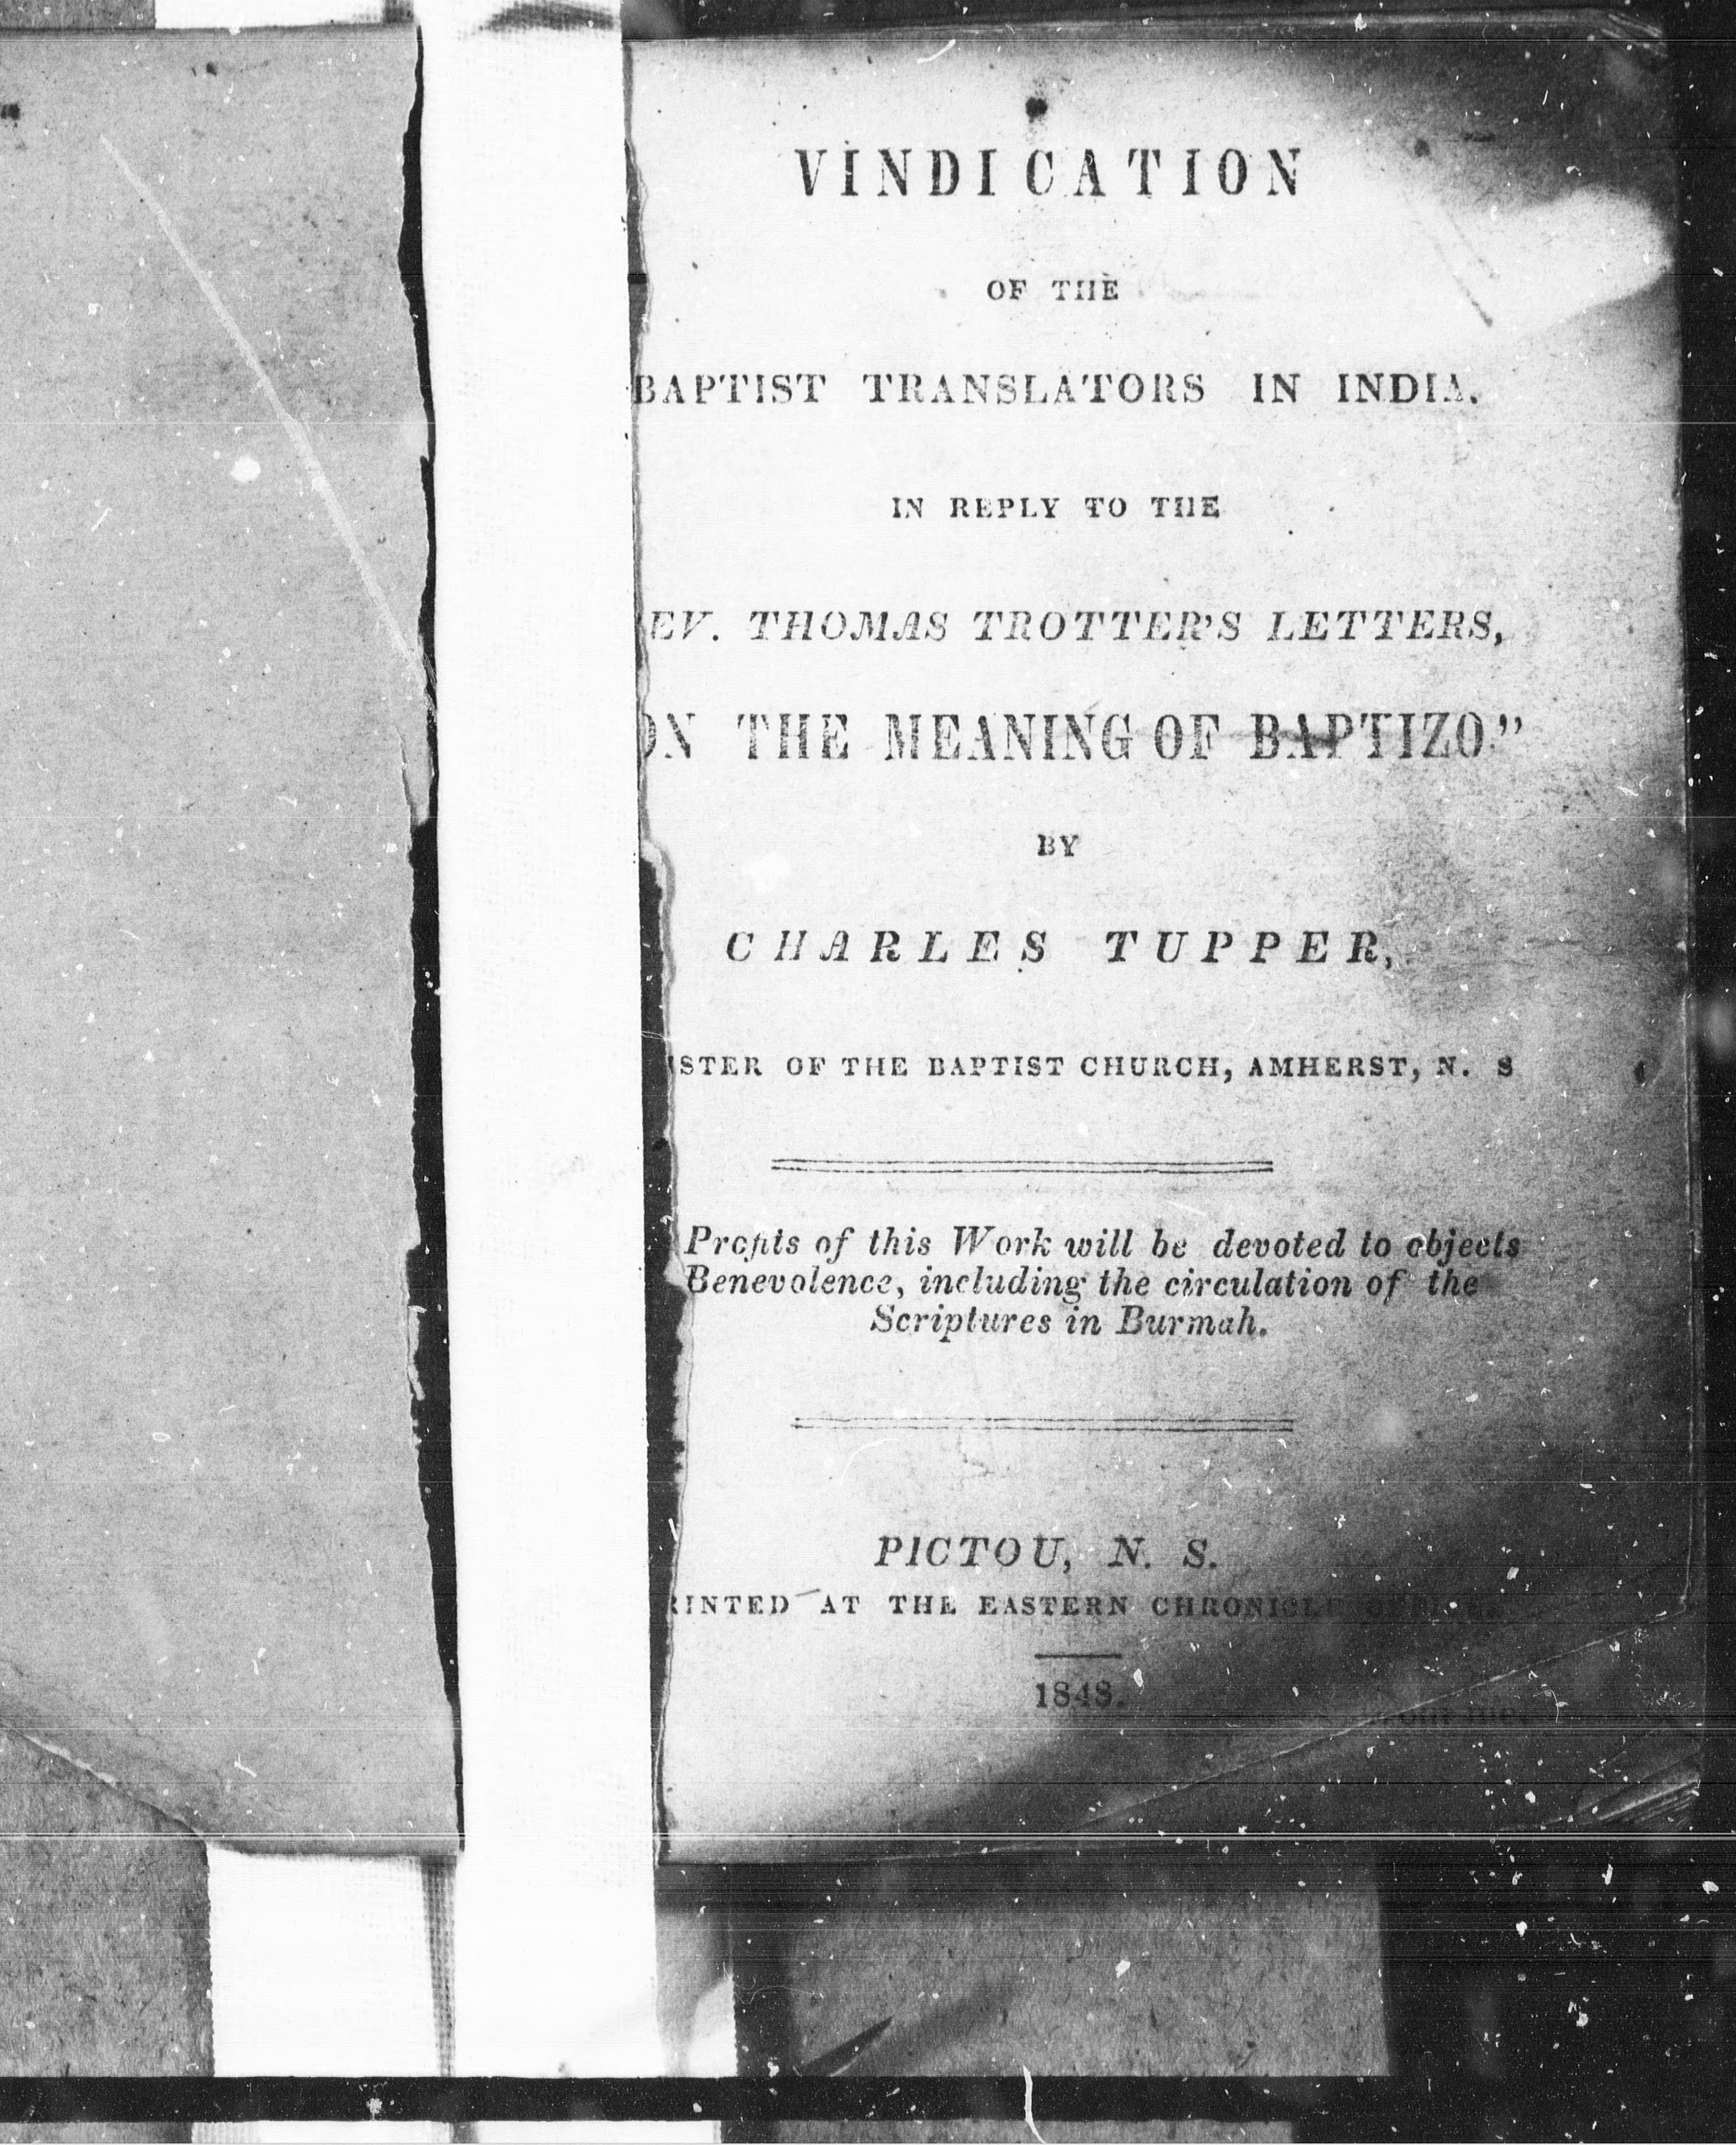 VINDICATION
OF THE
BAPTIST TRANSLATORS IN INDIA.
IN REPLY TO THE
EV. THOMAS TROTTER'S LETTERS,
ON THE MEANING OF BAPTIZO."
BY
CHARLES TUPPER,
ISTER OF THE BAPTIST CHURCH, AMHERST, N. S
Profits of this Work will be devoted to objects
Benevolence, including the circulation of the
Scriptures in Burmah.
PICTOU, N. S.
RINTED AT THE EASTERN CHRONICLE OFFICE.
1848.